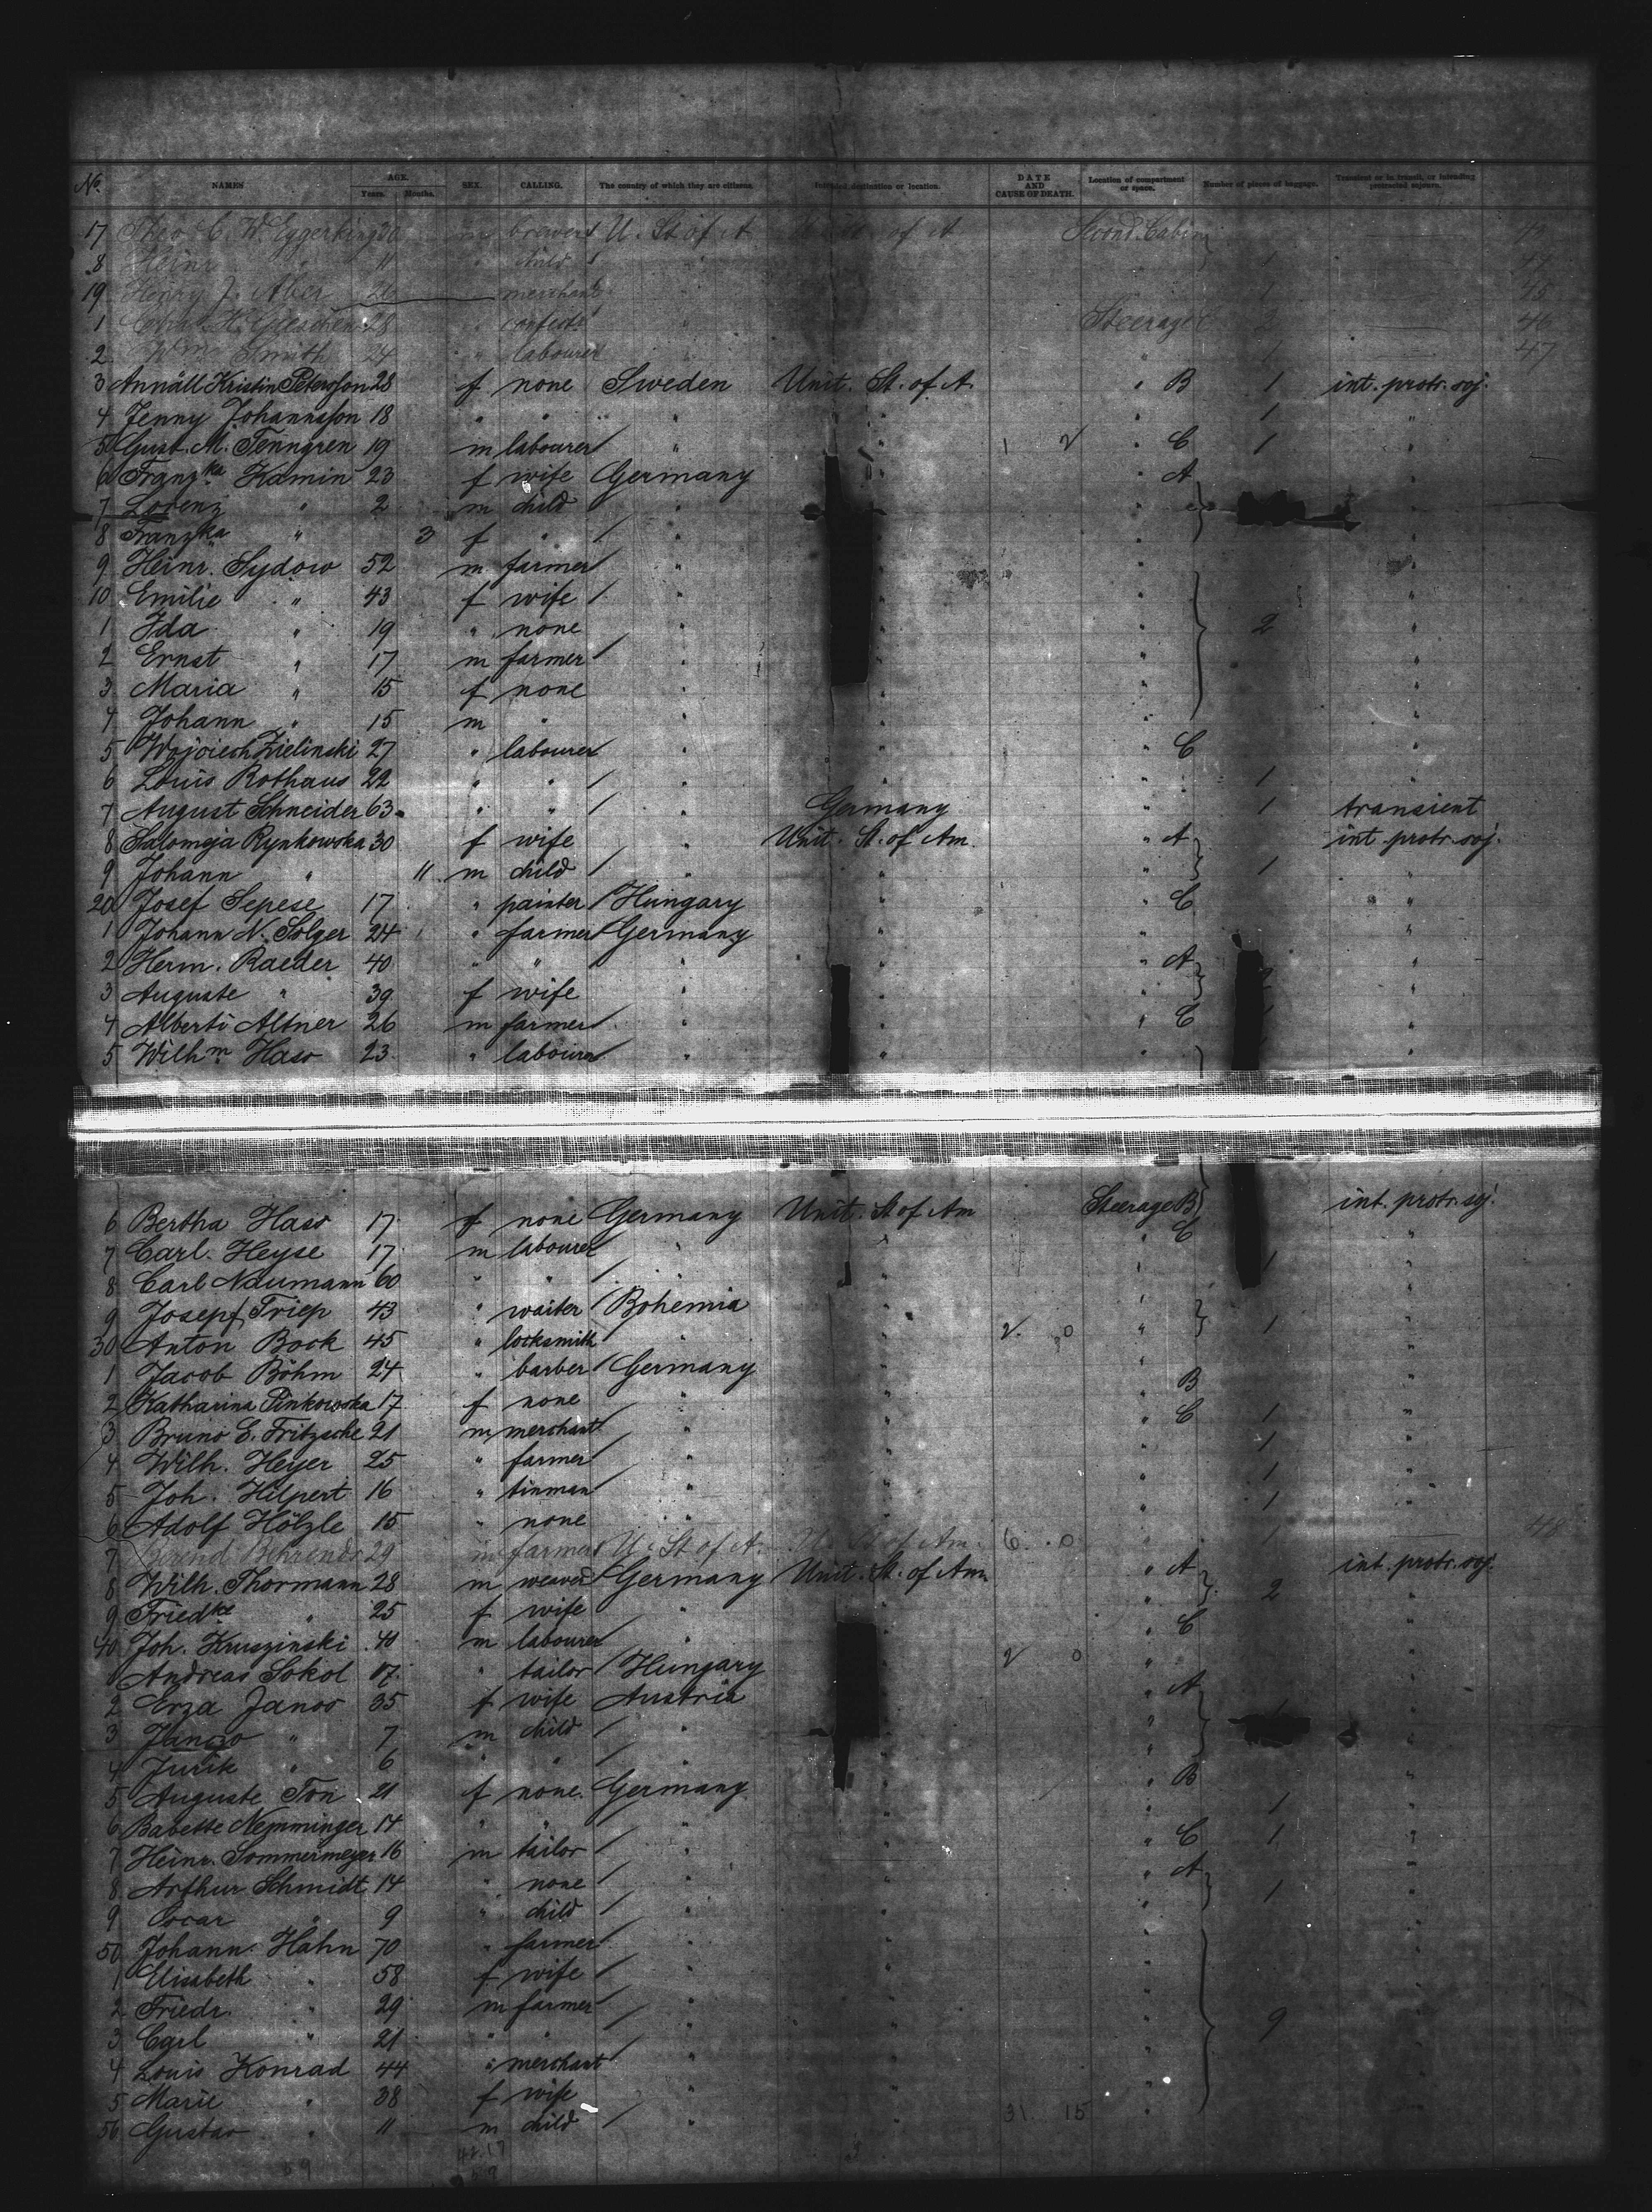 No. NAMES AGE. Years. Months. SEX. CALLING. The country of which they are citizens. Intended destination or location. DATE AND CAUSE OF DEATH. Location of compartment or space. Number of pieces of baggage. Transient or in transit, or intending protracted sojourn.
17 Theo C. W. Eggerking 30 m brewer U. St of A of A Second Cabin
8 Heinr " 11 " child 1 44
19 Henry J. Aber 26 merchant 1 45
1 28 " Steerage C 2 46
2 Wm Smith 24 " labourer " 1 47
3 Annäll Kristin Petersson 28 f none Sweden Unit. St. of A. " B 1 int. protr. soj.
4 Jenny Johannsson 18 " " " " " 1 "
5 Gust. M. Tenngren 19 m labourer " 1 2 " C 1 "
6 Franzka Kamin 23 f wife Germany " A
7 Lorenz " 2 m child " "
8 Franzka " 3 f " "
9 Heinr. Sydow 52 m farmer " " " "
10 Emilie " 43 f wife " " " "
1 Ida " 19 " none " " " 2 "
2 Ernst " 17 m farmer " " " "
3 Maria " 15 f none " " " "
4 Johann " 15 m " " " " "
5 Wojciech Zielinski 27 " labourer " " " C "
6 Louis Rothaus 22 " " " " " 1 "
7 August Schneider 63 " " Germany " 1 transient
8 Salomeja Rynkowska 30 f wife " Unit. St. of Am. " A int. protr. soj.
9 Johann " 11 m child " " " 1 "
20 Josef Sepese 17 " painter Hungary " " C "
1 Johann N. Solger 24 " farmer Germany " " "
2 Herm. Raeder 40 " " " " " A "
3 Auguste " 39 f wife " " " "
4 Alberti Altner 26 m farmer " " " C "
5 Wilhm Hass 23 " labourer " " " "
6 Bertha Hass 17 f none Germany Unit. St of Am Steerage B int. protr. soj.
7 Carl Heyse 17 m labourer " " " C "
8 Carl Naumann 60 " " " " " 1 "
9 Josepf Triep 43 " waiter Bohemia " " "
30 Anton Bock 45 " locksmith " " 2 0 " 1 "
1 Jacob Böhm 24 " barber Germany " " "
2 Katharina Pinkowska 17 f none " " " B "
3 Bruno E. Fritzsche 21 m merchant " " " C 1 "
4 Wilh. Heyer 25 " farmer " " " 1 "
5 Joh. Hilpert 16 " tinman " " " 1 "
6 Adolf Hölzle 15 " none " " " 1 "
7 Berend Behrends 29 m farmer U. St of A. U. St of Am. 6 0 " 1 48
8 Wilh. Thormann 28 m weaver Germany Unit. St. of Am. " A int. protr. soj.
9 Friedke " 25 f wife " " " 2 "
40 Joh. Kruszinski 40 m labourer " " " C "
1 Andreas Sokol 17 " tailor Hungary " 2 0 " "
2 Erza Janos 35 f wife Austria " " A
3 Janos " 7 m child " " "
4 Jurik " 6 " " " " "
5 Auguste Ton 21 f none Germany " " B "
6 Babette Nemminger 14 " " " " " 1 "
7 Heinr. Sommermeyer 16 m tailor " " " C 1 "
8 Arthur Schmidt 14 " none " " " A "
9 Oscar " 9 " child " " " 1 "
50 Johann Hahn 70 " farmer " " " "
1 Elisabeth " 58 f wife " " " "
2 Friedr. " 29 m farmer " " " "
3 Carl " 21 " " " " " 9 "
4 Louis Konrad 44 " merchant " " " "
5 Marie " 38 f wife " " " "
56 Gustav " 11 m child " " 31 15 " "